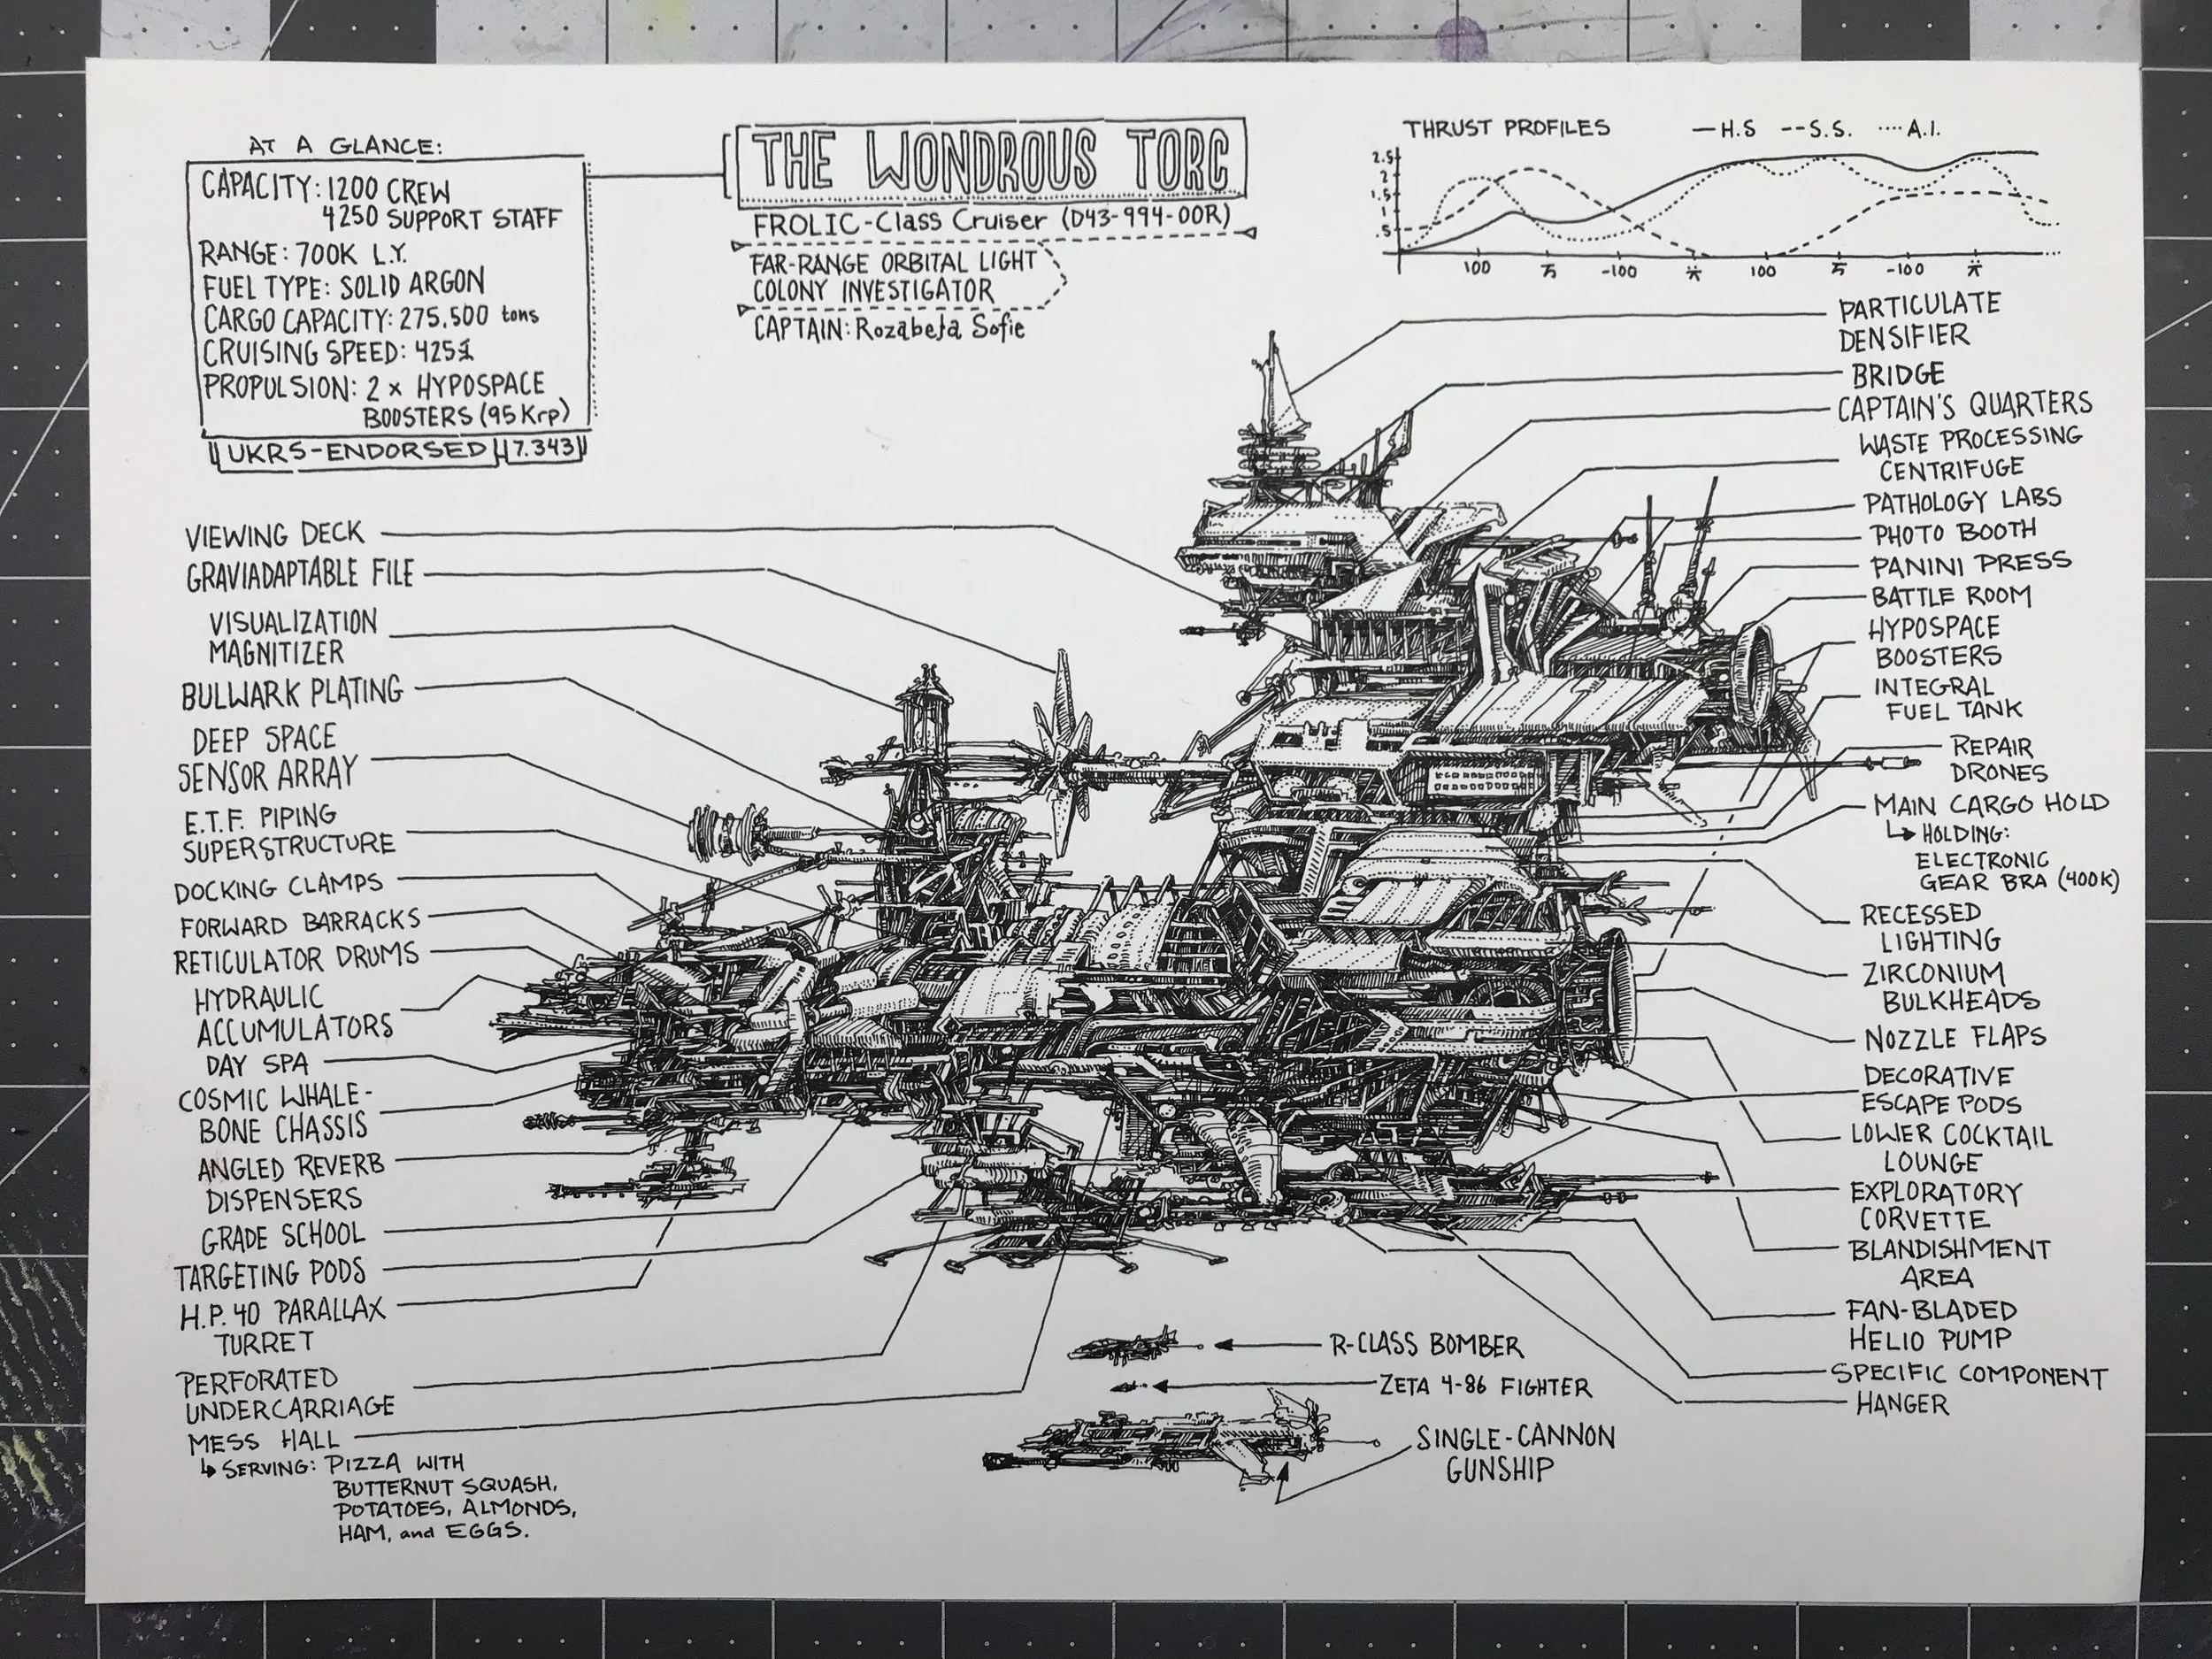 AT A GLANCE:
CAPACITY: 1200 CREW
4250 SUPPORT STAFF
RANGE: 700K L.Y.
FUEL TYPE: SOLID ARGON
CARGO CAPACITY: 275,500 tons
CRUISING SPEED: 425
PROPULSION: 2 x HYPOSPACE
BOOSTERS (95Krp)
UKRS-ENDORSED 7.343
THE WONDROUS TORC
FROLIC-Class Cruiser (D43-994-00R)
FAR-RANGE ORBITAL LIGHT
COLONY INVESTIGATOR
CAPTAIN: Rozabeta Sofie
THRUST PROFILES —H.S --S.S. ····A.I.
2.5
2
1.5
1
.5
100 -100 100 -100
VIEWING DECK
GRAVIADAPTABLE FILE
VISUALIZATION
MAGNITIZER
BULWARK PLATING
DEEP SPACE
SENSOR ARRAY
E.T.F. PIPING
SUPERSTRUCTURE
DOCKING CLAMPS
FORWARD BARRACKS
RETICULATOR DRUMS
HYDRAULIC
ACCUMULATORS
DAY SPA
COSMIC WHALE-
BONE CHASSIS
ANGLED REVERB
DISPENSERS
GRADE SCHOOL
TARGETING PODS
H.P. 40 PARALLAX
TURRET
PERFORATED
UNDERCARRIAGE
MESS HALL
↳ SERVING: PIZZA WITH
BUTTERNUT SQUASH,
POTATOES, ALMONDS,
HAM, and EGGS.
PARTICULATE
DENSIFIER
BRIDGE
CAPTAIN'S QUARTERS
WASTE PROCESSING
CENTRIFUGE
PATHOLOGY LABS
PHOTO BOOTH
PANINI PRESS
BATTLE ROOM
HYPOSPACE
BOOSTERS
INTEGRAL
FUEL TANK
REPAIR
DRONES
MAIN CARGO HOLD
↳ HOLDING:
ELECTRONIC
GEAR BRA (400K)
RECESSED
LIGHTING
ZIRCONIUM
BULKHEADS
NOZZLE FLAPS
DECORATIVE
ESCAPE PODS
LOWER COCKTAIL
LOUNGE
EXPLORATORY
CORVETTE
BLANDISHMENT
AREA
FAN-BLADED
HELIO PUMP
SPECIFIC COMPONENT
HANGER
R-CLASS BOMBER
ZETA 4-86 FIGHTER
SINGLE-CANNON
GUNSHIP